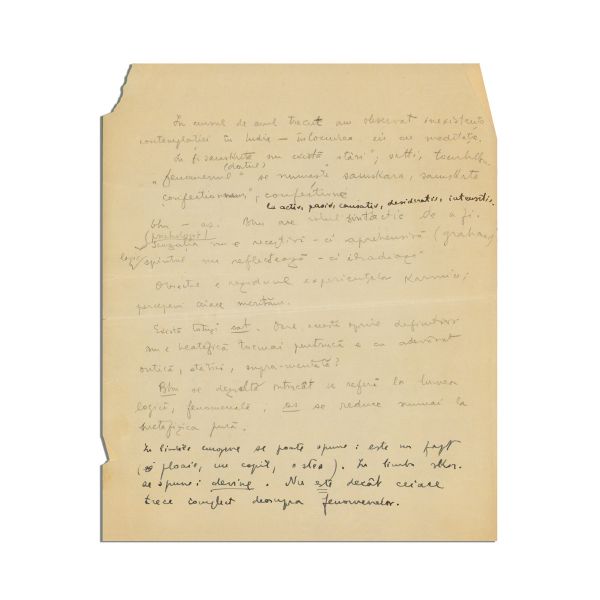 În cursul de anul trecut am observat inexistența
contemplației în Indie – înlocuirea ei cu meditația.
În fi. sanskrită nu există „stări",
(datul)
„fenomenul" se numește samskara, samskrta
„confecționare", confecțiune
la activ, pasiv, causativ, desiderativ, intensitiv.
bhu – as. Bhu are rolul sintactic de a fi.
(psihologic)
Senzația nu e receptivă – ci aprehensivă (grahana)
logic spiritul nu reflectează – ci iradiază
Obiecte e reziduul experiențelor Karmice;
percepem ceiace merităm.
Există totuși sat. Oare, această
nu e beatifică tocmai pentrucă e cu adevărat
ontică, stării, supra-mentală?
Bhu se dezvoltă întrucât se referă la lumea
logică, fenomenală; as se reduce numai la
metafizica pură.
În limbile europene se poate spune: este un fapt
(o ploaie, un copil, o stea). În limba skr.
se spune: devine. Nu este decât ceiace
trece complect deasupra fenomenelor.